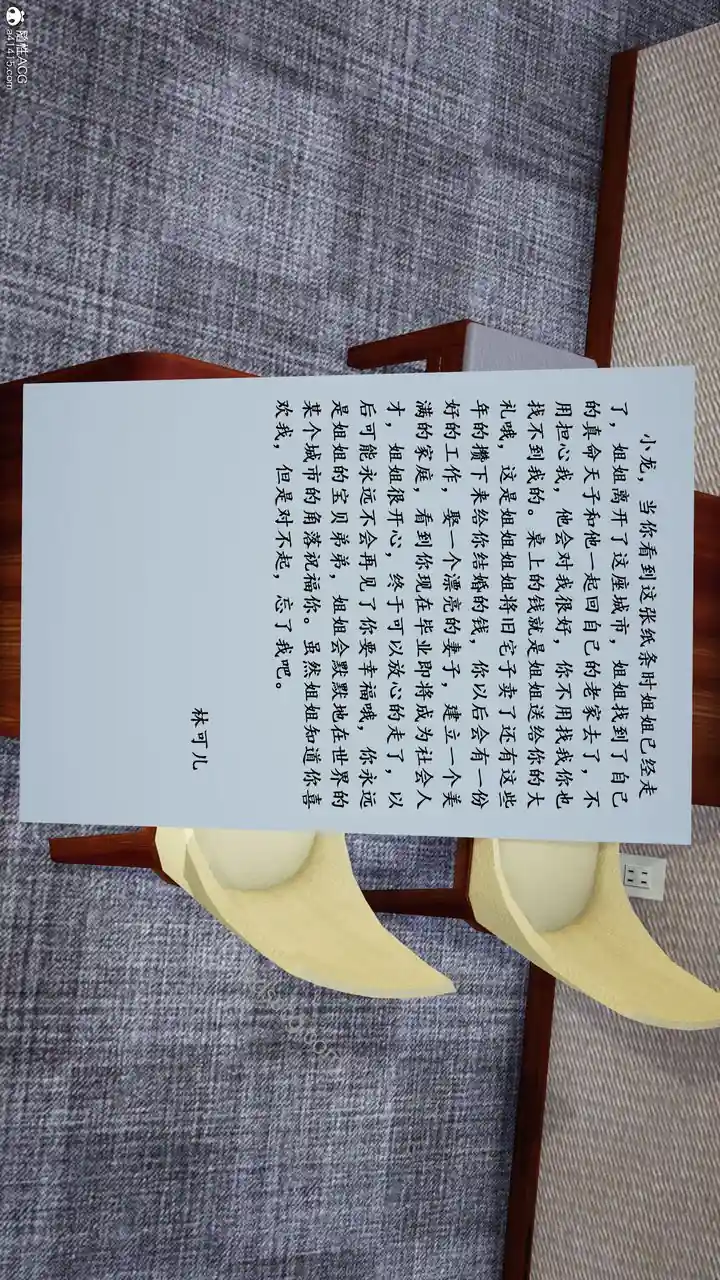 小龙，当你看到这张纸条时姐姐已经走
了，姐姐离开了这座城市，姐姐找到了自己
的真命天子和他一起回自己的老家去了，不
用担心我，他会对我很好，你不用找我你也
找不到我的。桌上的钱就是姐姐送给你的大
礼哦，这是姐姐姐姐将旧宅子卖了还有这些
年的攒下来给你结婚的钱，你以后会有一份
好的工作，娶一个漂亮的妻子，建立一个美
满的家庭，看到你现在毕业即将成为社会人
才，姐姐很开心，终于可以放心的走了，以
后可能永远不会再见了你要幸福哦，你永远
是姐姐的宝贝弟弟，姐姐会默默地在世界的
某个城市的角落祝福你。虽然姐姐知道你喜
欢我，但是对不起，忘了我吧。
林可儿
随性ACG
a41415.com